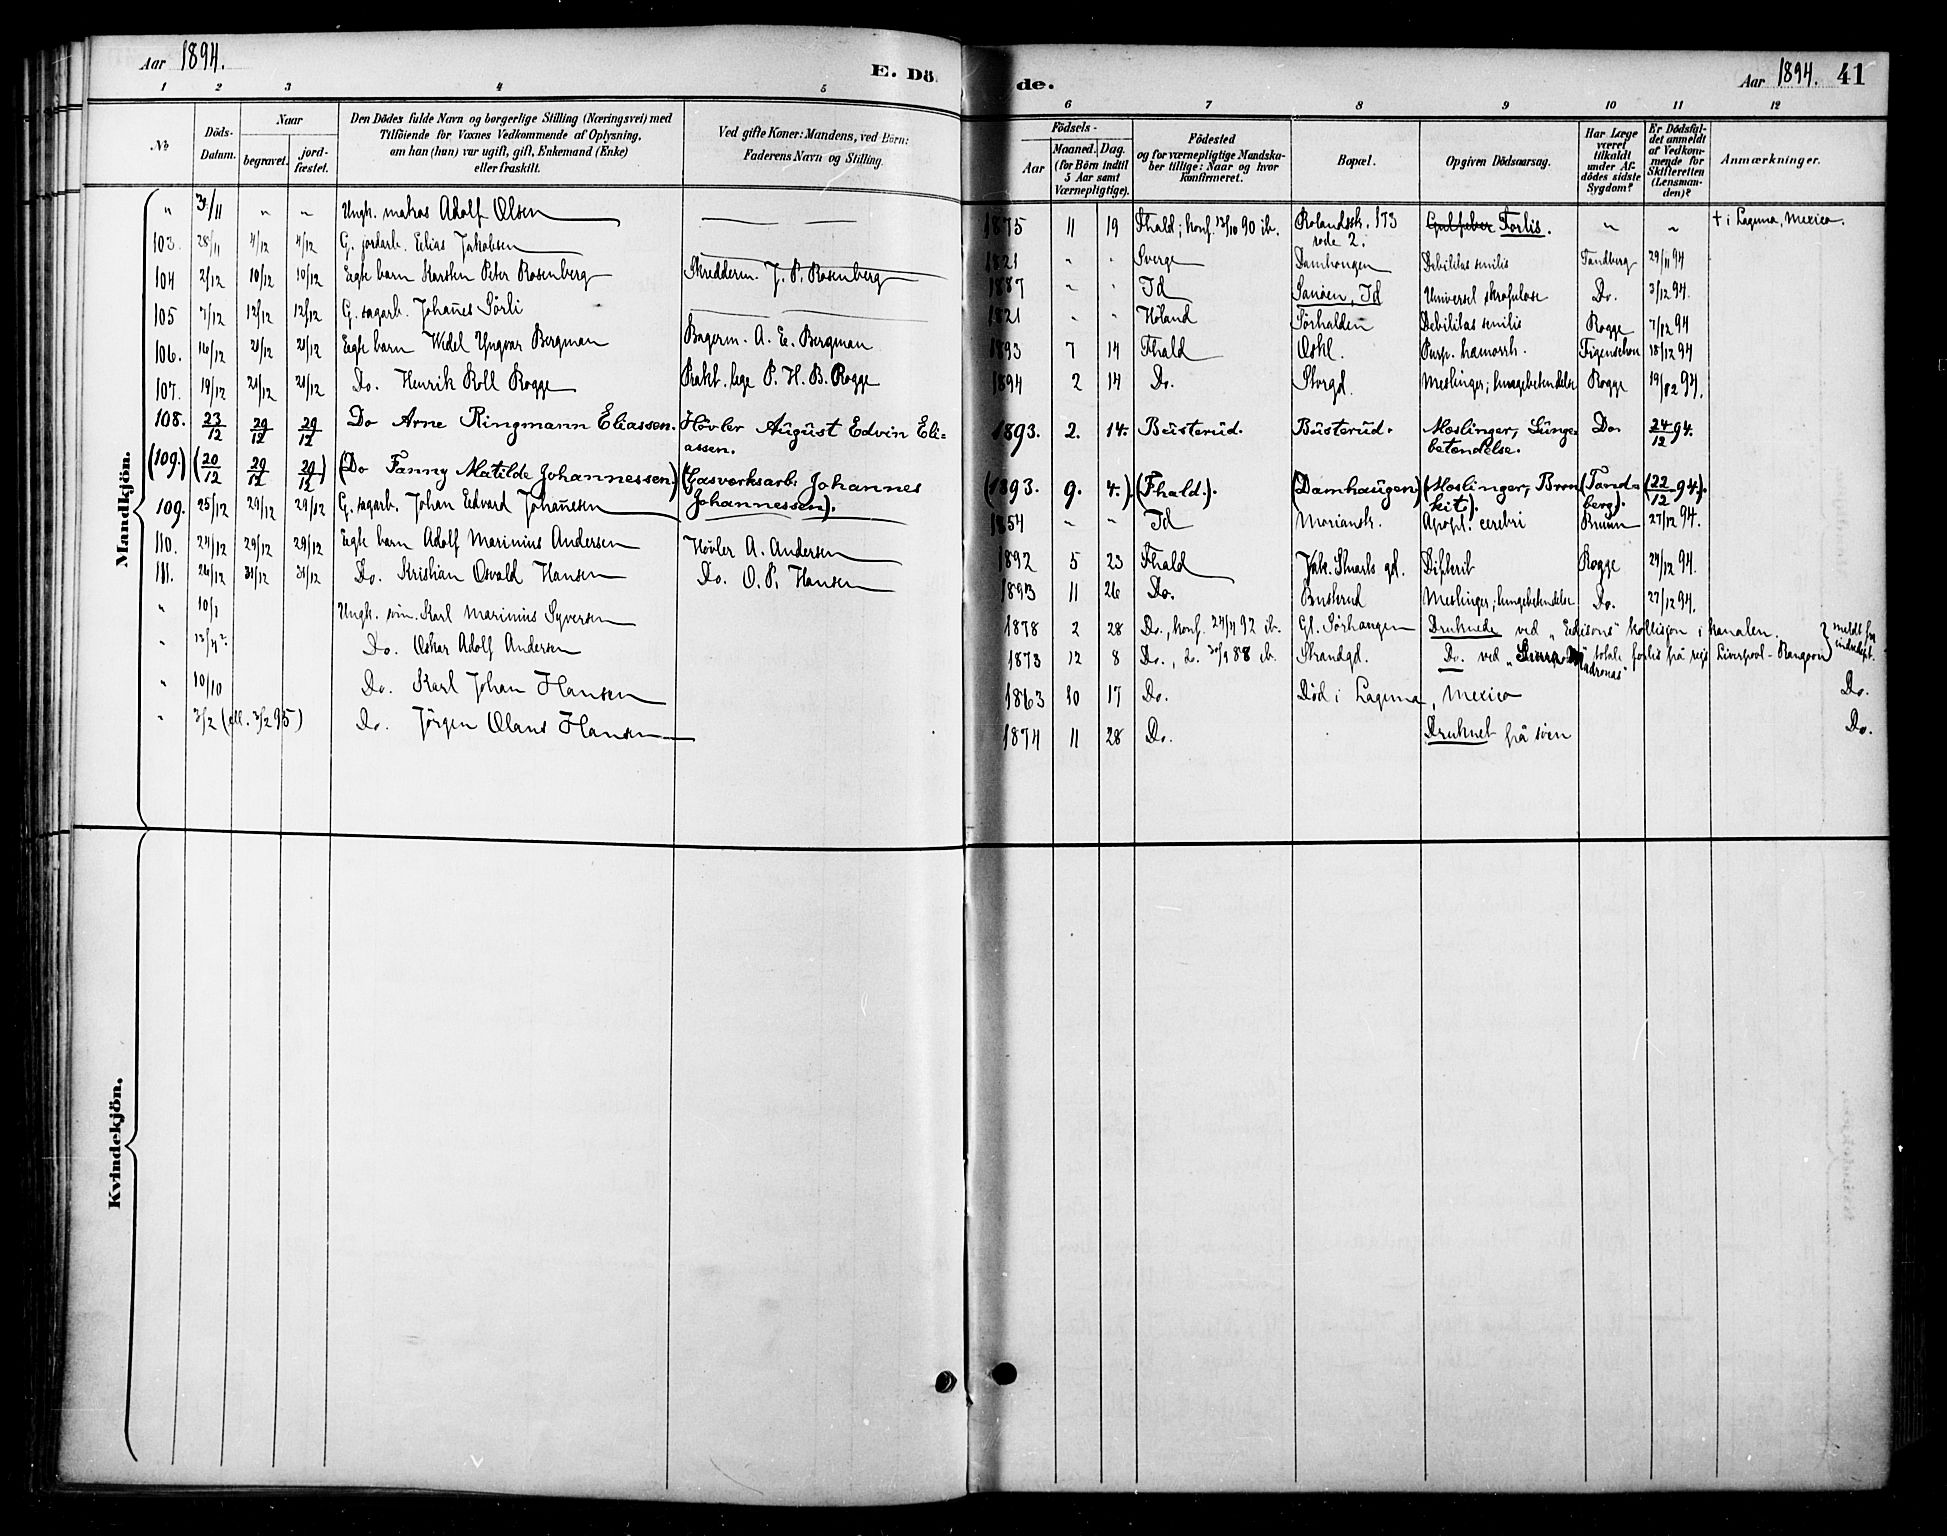 Aar 1894.
E. Dö
de.
Aar 1894. 41
1 2 3 4 5 6 7 8 9 10 11 12
No
Döds-Datum.
Naar
begravet.
jordfæstet.
Den Dödes fulde Navn og borgerlige Stilling (Næringsvei) med
Tilföiende for Voxnes Vedkommende af Oplysning,
om han (hun) var ugift, gift, Enkemand (Enke)
eller fraskilt.
Ved gifte Koner: Mandens, ved Börn:
Faderens Navn og Stilling.
Födsels-
Aar
Maaned. Dag.
(for Börn indtil
5 Aar samt
Værnepligtige).
Födested
og for værnepligtige Mandska-
ber tillige: Naar og hvor
konfirmeret.
Bopæl.
Opgiven Dödsaarsag.
Har Læge
været
tilkaldt
under Af-
dödes sidste
Sygdom?
Er Dödsfal-
det anmeldt
af Vedkom-
mende for
Skifteretten
(Lensman-
den)?
Anmærkninger.
Mandkjön.
" /11 " " Ungk. matros Adolf Olsen 1875 11 19 Fhald; konf. 12/10 90 ib. Rolandssk. 173 rode 2. Gulfeber Forlis. " " † i Laguna, Mexico.
103. 28/11 4/12 4/12 G. jordarb. Elias Jakobsen 1821 " " Sverge Damhaugen Debilitas senilis Tandberg 29/11 94
104 2/12 10/12 10/12 Egte barn Karsten Peter Rosenberg Skredderm. J. P. Rosenberg 1887 " " Id Sanöen, Id Universel skrofulose Do. 3/12 94.
105 7/12 12/12 12/12 G. sagarb. Johañes Sörli 1821 " " Höland Sörhalden Debilitas senilis Rogge 7/12 94
106. 16/12 21/12 21/12 Egte barn Wedel Yngvar Bergman Bagerm. A. E. Bergman 1893 7 14 Fhald Oskl. Purp. hæmorrh. Figenschou 18/12 94
107. 19/12 21/12 21/12 Do. Henrik Roll Rogge Prakt. lege P. H. B. Rogge 1894 2 14 Do. Storgd. Meslinger; lungebetendelse Rogge 19/12 94.
108. 23/12 29/12 29/12 Do Arne Ringmann Eliassen. Hövler August Edvin Eli-
assen. 1893. 2. 14. Busterud. Busterud. Meslinger, Lunge-
betendelse. Do 24/12 94.
(109.) (20/12 29/12 29/12) (Do Fanny Matilde Johannessen.) (Gasverksarb. Johannes
Johannessen). (1893. 9. 4.) (Fhald.) (Damhaugen) (Meslinger, Bron
kit). (Tand-
berg). (22/12 94.)
109. 25/12 29/12 29/12 G. sagarb. Johan Edvard Johañesen 1854 " " Id Moriansk. Apopl. cerebri Bruun 27/12 94.
110. 24/12 29/12 29/12 Egte barn Adolf Marinius Andersen Hövler A. Andersen 1892 5 23 Fhald Jak. Stuarts gd. Difterit Rogge 24/12 94.
111. 26/12 31/12 31/12 Do. Kristian Osvald Hansen Do. O. P. Hansen 1893 11 26 Do. Busterud Meslinger; lungebetendelse Do. 27/12 94.
" 10/1 Ungk. söm. Karl Marinius Syversen 1878 2 28 Do., konf. 24/4 92 ib. Gl. Sörhaugen Druknede ved "Edisons" kollisjon i kanalen.
" 12/4? Do. Oskar Adolf Andersen 1873 12 8 Do., do. 88 ib. Strandgd. Do. ved "Madronas" totale forlis på rejs Liverpool-Rangoon } meldt fra inderdept.
" 10/10 Do. Karl Johan Hansen 1863 10 17 Do. Död i Laguna, Mexico Do.
" 3/2 (ell. 3/2 95) Do. Jörgen Olaus Hansen 1874 11 28 Do. Druknet på söen Do.
Kvindekjön.